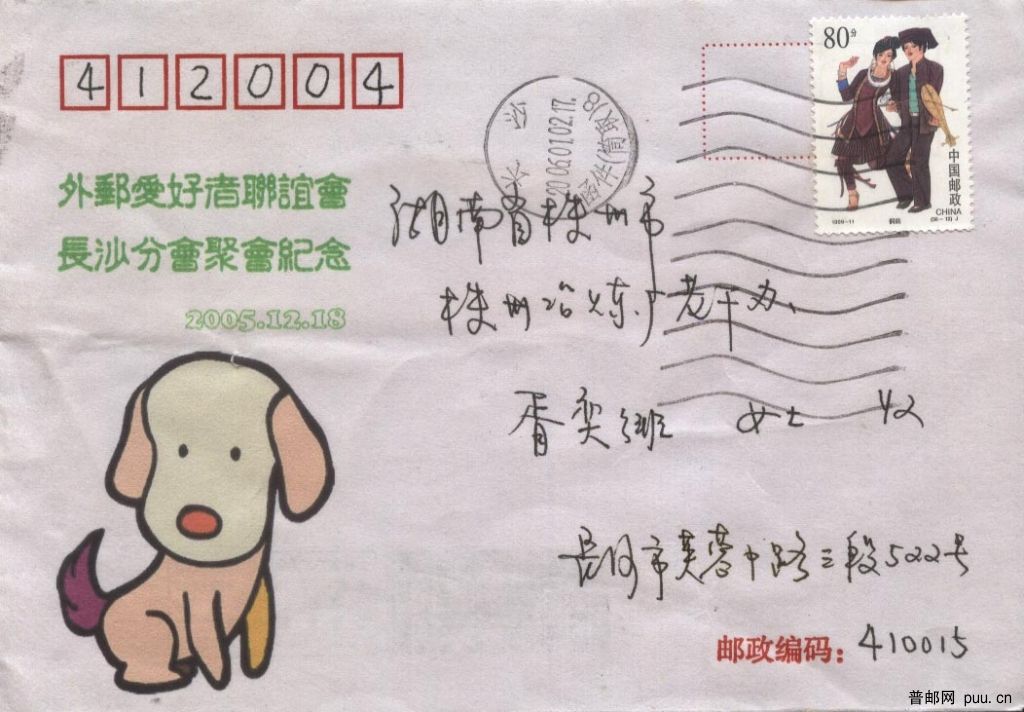 412004
80分
中国邮政
CHINA
1999-11
(56-18)J
长沙
2006.01.02.17
外郵愛好者聯誼會
長沙分會聚會紀念
2005.12.18
湖南省株州市
株州冶炼厂老干办、
胥奕 女士 收
长沙市芙蓉中路三段522号
邮政编码:410015
普邮网 puu.cn